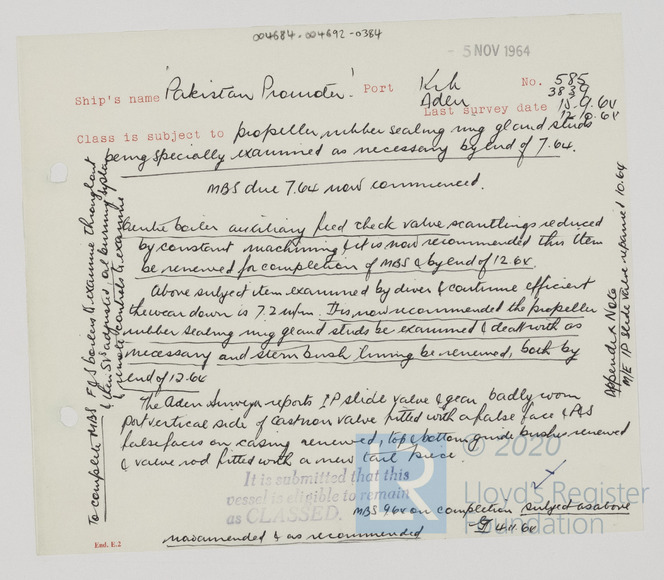 004684-004692-0384
- 5 NOV 1964
Ship's name 'Pakistan Promoter' Port Kch No. 585
Aden 3839
Last survey date 15.9.64
12.10.64
Class is subject to propeller rubber sealing ring gland studs
being specially examined as necessary by end of 7.64.
MBS due 7.64 now commenced.
Centre boiler auxiliary feed check valve scantlings reduced
by constant machining & it is now recommended this item
be renewed for completion of MBS & by end of 12.64.
Above subject item examined by diver & continue efficient
the wear down is 7.2 m/m. It is now recommended the propeller
rubber sealing ring gland studs be examined & dealt with as
necessary and stern bush lining be renewed, both by
end of 12.64
The Aden Surveyor reports IP slide valve & gear badly worn
port vertical side of cast iron valve fitted with a false face & P&S
false faces on casing renewed, top & bottom guide bushes renewed
& valve rod fitted with a new tail piece
It is submitted that this
vessel is eligible to remain
as CLASSED.
MBS 9.64 on completion subject as above
now amended & as recommended
4.11.64
End. E.2
To complete MBS F&S boilers to examine throughout
& then SVs adjusted, oil burning system
& remote controls to examine
Appendix Note
M/E IP slide valve repaired 10.64
© 2020
Lloyd's Register
Foundation
LR